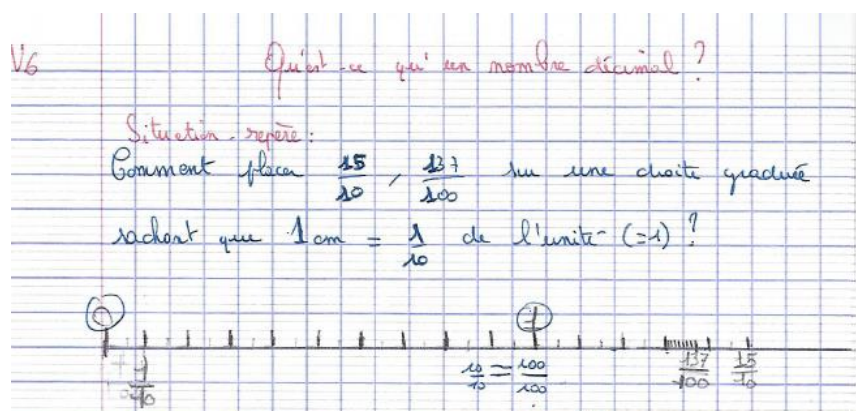 N6 Qu'est-ce qu'un nombre décimal ?
Situation-repère :
Comment placer 15/10, 137/100 sur une droite graduée
sachant que 1 cm = 1/10 de l'unité (=1) ?
0 1
1/10 10/10 = 100/100 137/100 15/10